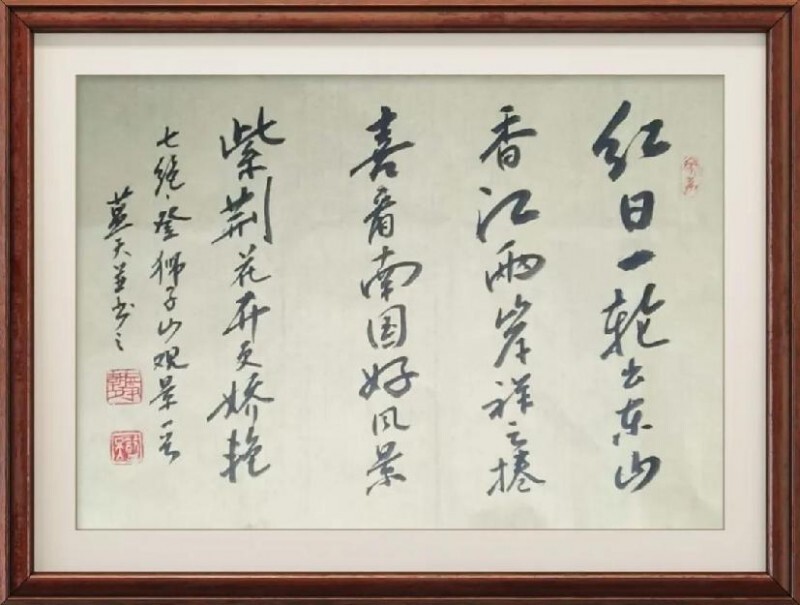 红日一轮出东山
香江两岸祥云捲
喜看南国好风景
紫荆花开更娇艳
七绝·登狮子山观景一首
莫天並书之